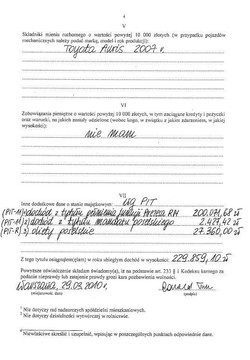 4
V
Składniki mienia ruchomego o wartości powyżej 10 000 złotych (w przypadku pojazdów
mechanicznych należy podać markę, model i rok produkcji):
Toyota Auris 2007 r.
VI
Zobowiązania pieniężne o wartości powyżej 10 000 złotych, w tym zaciągnięte kredyty i pożyczki
oraz warunki, na jakich zostały udzielone (wobec kogo, w związku z jakim zdarzeniem, w jakiej
wysokości):
nie mam
VII
Inne dodatkowe dane o stanie majątkowym: wg PIT
(PIT-11) 1) dochód z tytułu pełnienia funkcji Prezesa RM 200.071,68 zł
(PIT-11) 2) dochód z tytułu mandatu poselskiego 2.427,42 zł
(PIT-R) 3) diety poselskie 27.360,00 zł
Z tego tytułu osiągnąłem(ęłam) w roku ubiegłym dochód w wysokości: 229.859,10 zł
Powyższe oświadczenie składam świadomy(a), iż na podstawie art. 233 § 1 Kodeksu karnego za
podanie nieprawdy lub zatajenie prawdy grozi kara pozbawienia wolności.
Warszawa, 29.03.2010 r.
(miejscowość, data)
(podpis)
¹ Nie dotyczy rad nadzorczych spółdzielni mieszkaniowych.
² Nie dotyczy działalności wytwórczej w rolnictwie.
Niewłaściwe skreślić i uzupełnić, wpisując w poszczególnych punktach odpowiednie dane.